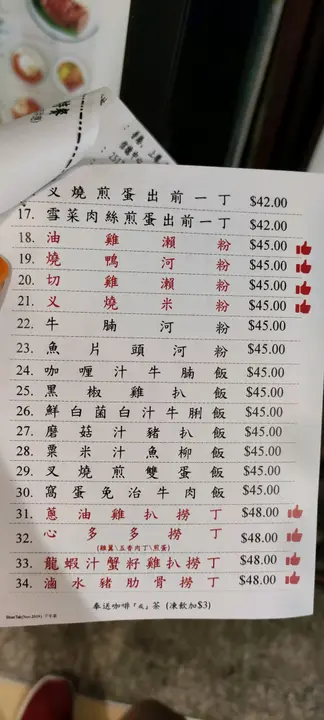 叉燒煎蛋出前一丁 $42.00
17. 雪菜肉絲煎蛋出前一丁 $42.00
18. 油雞瀨粉 $45.00
19. 燒鴨河粉 $45.00
20. 切雞瀨粉 $45.00
21. 叉燒米粉 $45.00
22. 牛腩河 $45.00
23. 魚片頭河粉 $45.00
24. 咖喱汁牛腩飯 $45.00
25. 黑椒雞扒飯 $45.00
26. 鮮白菌白汁牛脷飯 $45.00
27. 磨菇汁豬扒飯 $45.00
28. 粟米汁魚柳飯 $45.00
29. 叉燒煎雙蛋飯 $45.00
30. 窩蛋免治牛肉飯 $45.00
31. 蔥油雞扒撈丁 $48.00
32. 心多多撈丁 $48.00
(雞翼\五香肉丁\煎蛋)
33. 龍蝦汁蟹籽雞扒撈丁 $48.00
34. 滷水豬肋骨撈丁 $48.00
奉送咖啡「或」茶 (凍飲加$3)